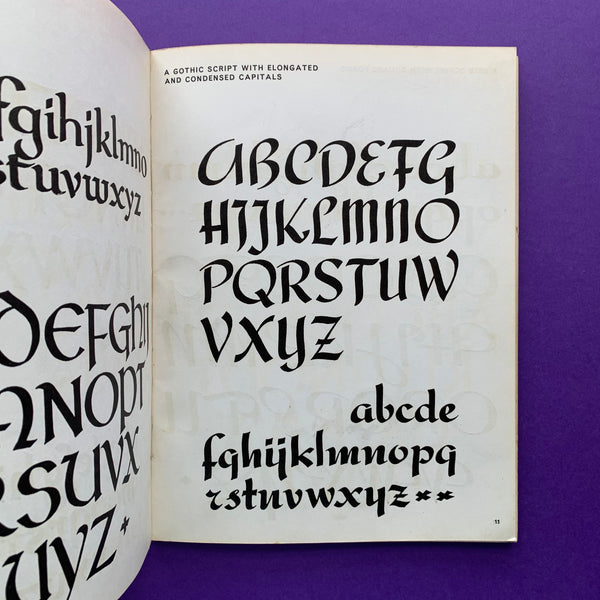 fgihjklmno
stuvwxyz
DEFGh
NOPT
RSUVX
UYZ
A GOTHIC SCRIPT WITH ELONGATED
AND CONDENSED CAPITALS
ABCDEFG
HIJKLMNO
PQRSTUW
VXYZ
abcde
fghijklmnopq
rstuvwxyz**
11